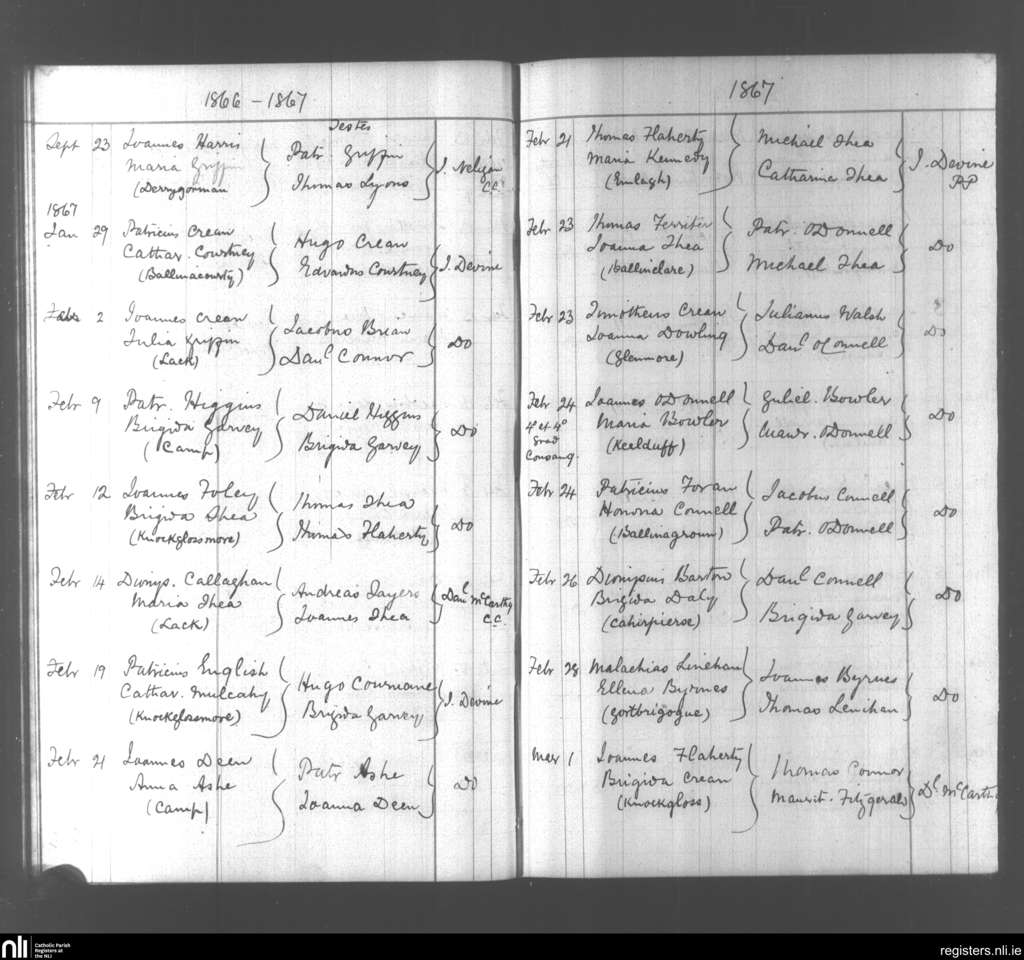 1866 - 1867
Testes
Sept 23 Ioannes Harris
Maria Griffin
(Derrygorman
Patr Griffin
Thomas Lyons
J. Neligan
C.C.
1867
Jan 29 Patricius Crean
Cathar. Courtney
(Ballinacourty)
Hugo Crean
Edvardus Courtney
J. Devine
Febr 2 Ioannes Crean
Julia Griffin
(Lack)
Jacobus Brian
Danl Connor
Do
Febr 9 Patr. Higgins
Brigida Garvey
(Camp)
Daniel Higgins
Brigida Garvey
Do
Febr 12 Ioannes Foley
Brigida Shea
(Knockglossmore)
Thomas Shea
Thomas Flaherty
Do
Febr 14 Dionys. Callaghan
Maria Shea
(Lack)
Andreas Sayers
Ioannes Shea
Danl McCarthy
C.C.
Febr 19 Patricius English
Cathar. Mulcahy
(Knockglossmore)
Hugo Courmane
Brigida Garvey
J. Devine
Febr 21 Ioannes Deen
Anna Ashe
(Camp)
Patr Ashe
Ioanna Deen
Do
1867
Febr 21 Thomas Flaherty
Maria Kennedy
(Emlagh)
Michael Shea
Catharina Shea
J. Devine
PP
Febr 23 Thomas Ferriter
Ioanna Shea
(Ballinclare)
Patr. ODonnell
Michael Shea
Do
Febr 23 Timotheus Crean
Ioanna Dowling
(Glenmore)
Julianus Walsh
Danl OConnell
Do
Febr 24 Ioannes ODonnell
4o et 4o
Grad
Consang.
Maria Bowler
(Keelduff)
Guliel. Bowler
ODonnell
Do
Febr 24 Patricius Foran
Honora Connell
(Ballinagroun)
Jacobus Connell
Patr. ODonnell
Do
Febr 26 Dionysius Barton
Brigida Daly
(Cahirpierse)
Danl Connell
Brigida Garvey
Do
Febr 28 Malachias Linehan
Ellena Byrnes
(Gortbrigogue)
Ioannes Byrnes
Thomas Lenihan
Do
Mar 1 Ioannes Flaherty
Brigida Crean
(Knockgloss)
Thomas Connor
Maurit. Fitzgerald
Dl McCarthy
nli
Catholic Parish
Registers at
the NLI
registers.nli.ie